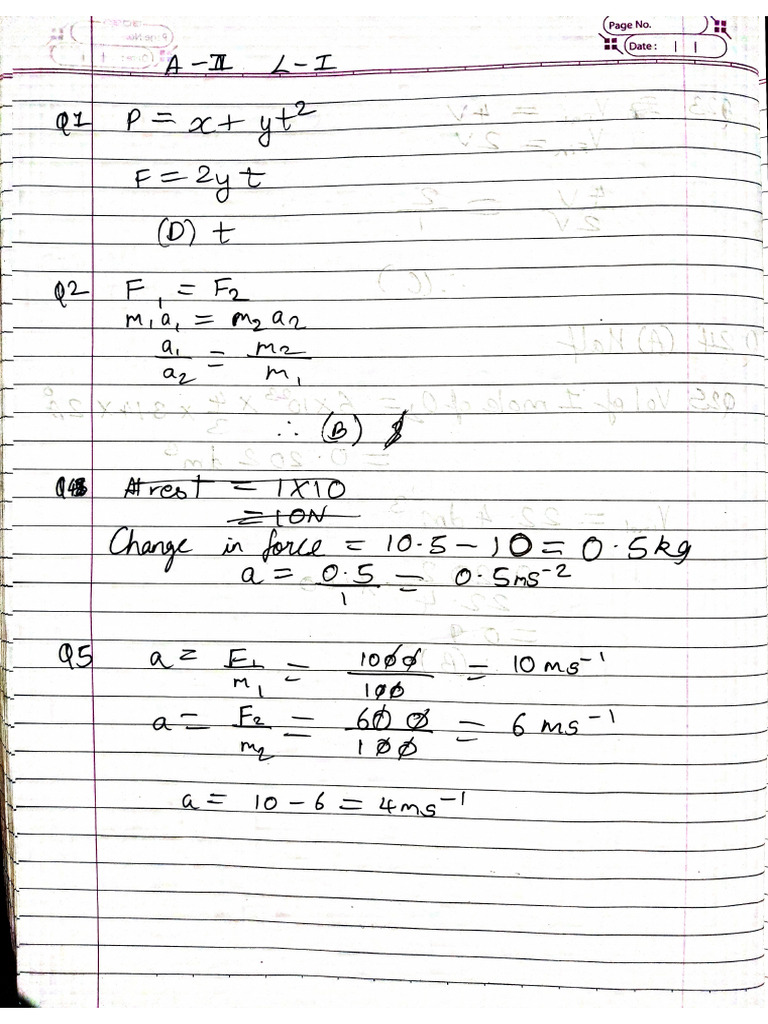 Page No.
Date: | |
A-II L-I
Q1 P = x + yt²
F = 2yt
(D) t
Q2 F₁ = F₂
m₁a₁ = m₂a₂
a₁/a₂ = m₂/m₁
∴ (B)
Q4 At rest = 1×10
= 10N
Change in force = 10.5 - 10 = 0.5kg
a = 0.5/1 = 0.5ms⁻²
Q5 a = F₁/m₁ = 1000/100 = 10 ms⁻¹
a = F₂/m₂ = 600/100 = 6 ms⁻¹
a = 10 - 6 = 4ms⁻¹